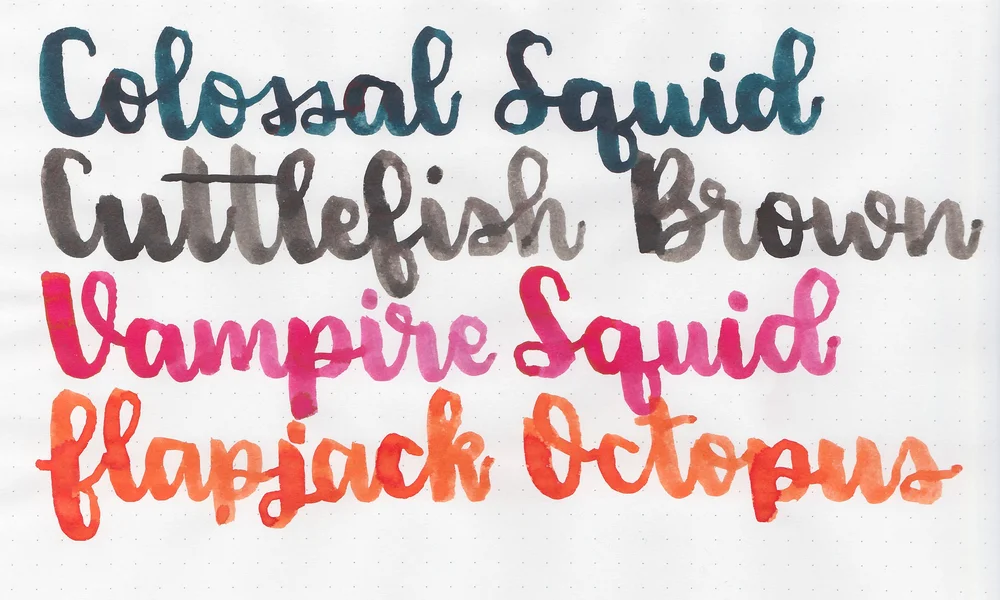 Colossal Squid
Cuttlefish Brown
Vampire Squid
flapjack Octopus